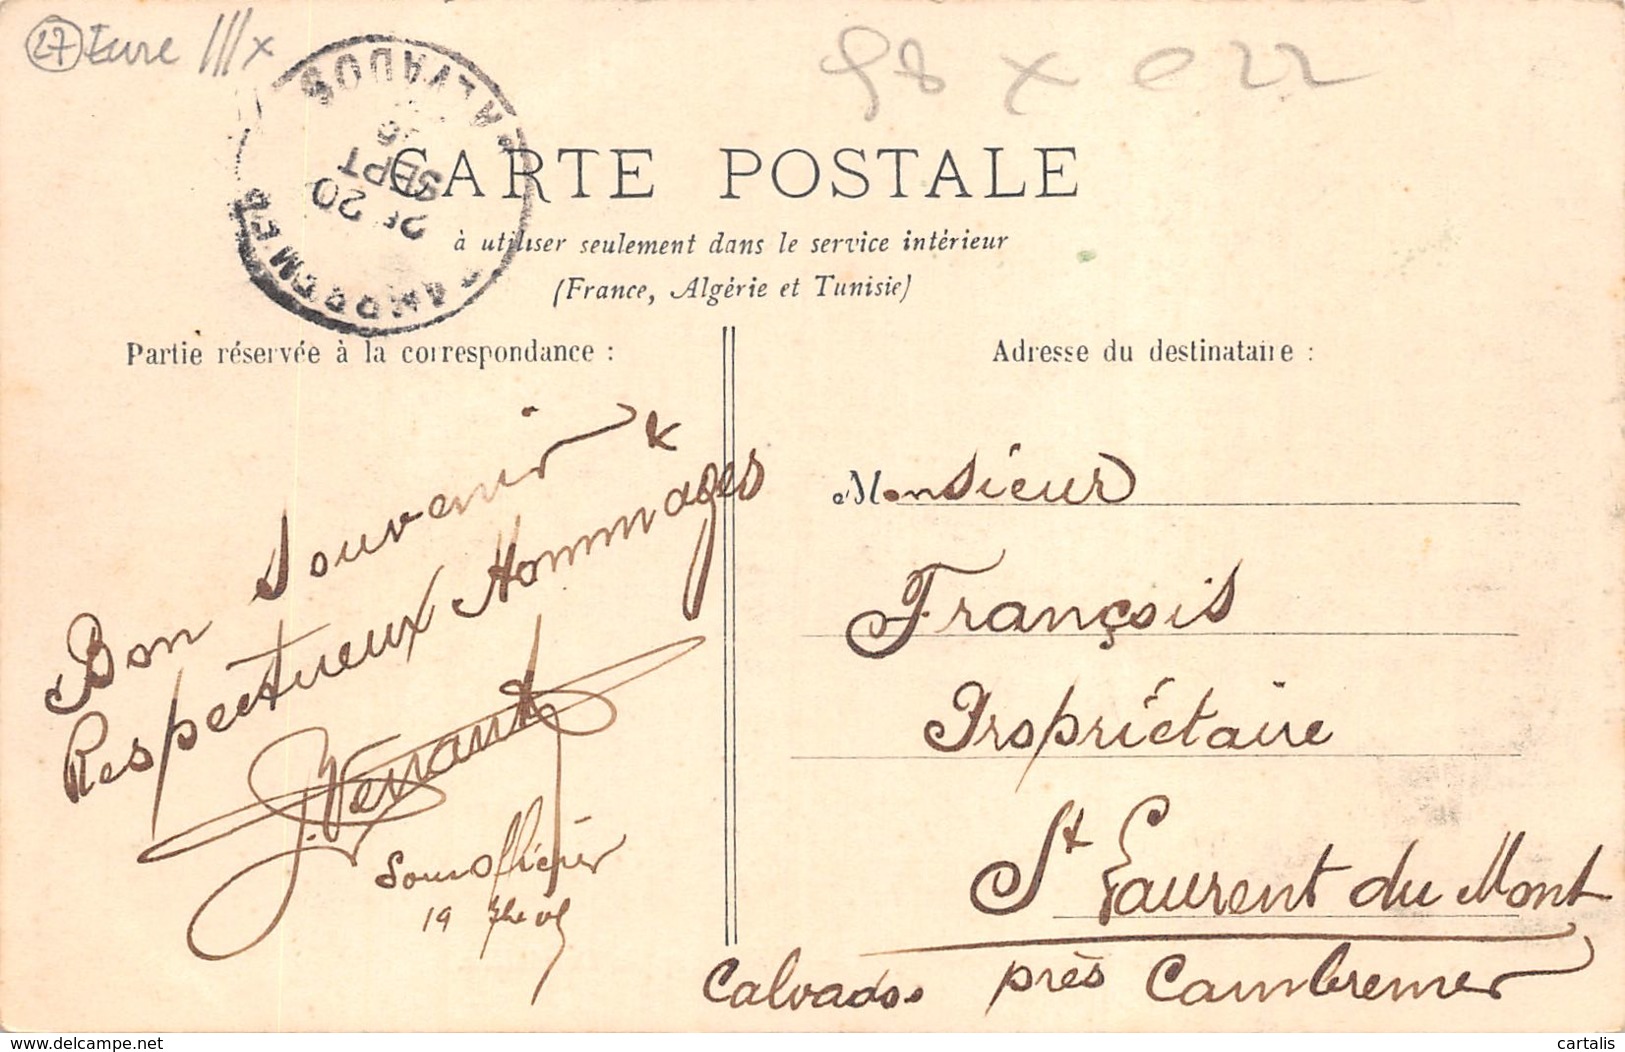 27 Eure
98 x 022
CALVADOS
20
SEPT
CARTE POSTALE
à utiliser seulement dans le service intérieur
(France, Algérie et Tunisie)
Partie réservée à la correspondance :
Adresse du destinataire :
Bon Souvenir &
Respectueux Hommages
Sous Officier
19
Monsieur
François
Propriétaire
St Laurent du Mont
près Cambremer
Calvados.
www.delcampe.net
cartalis